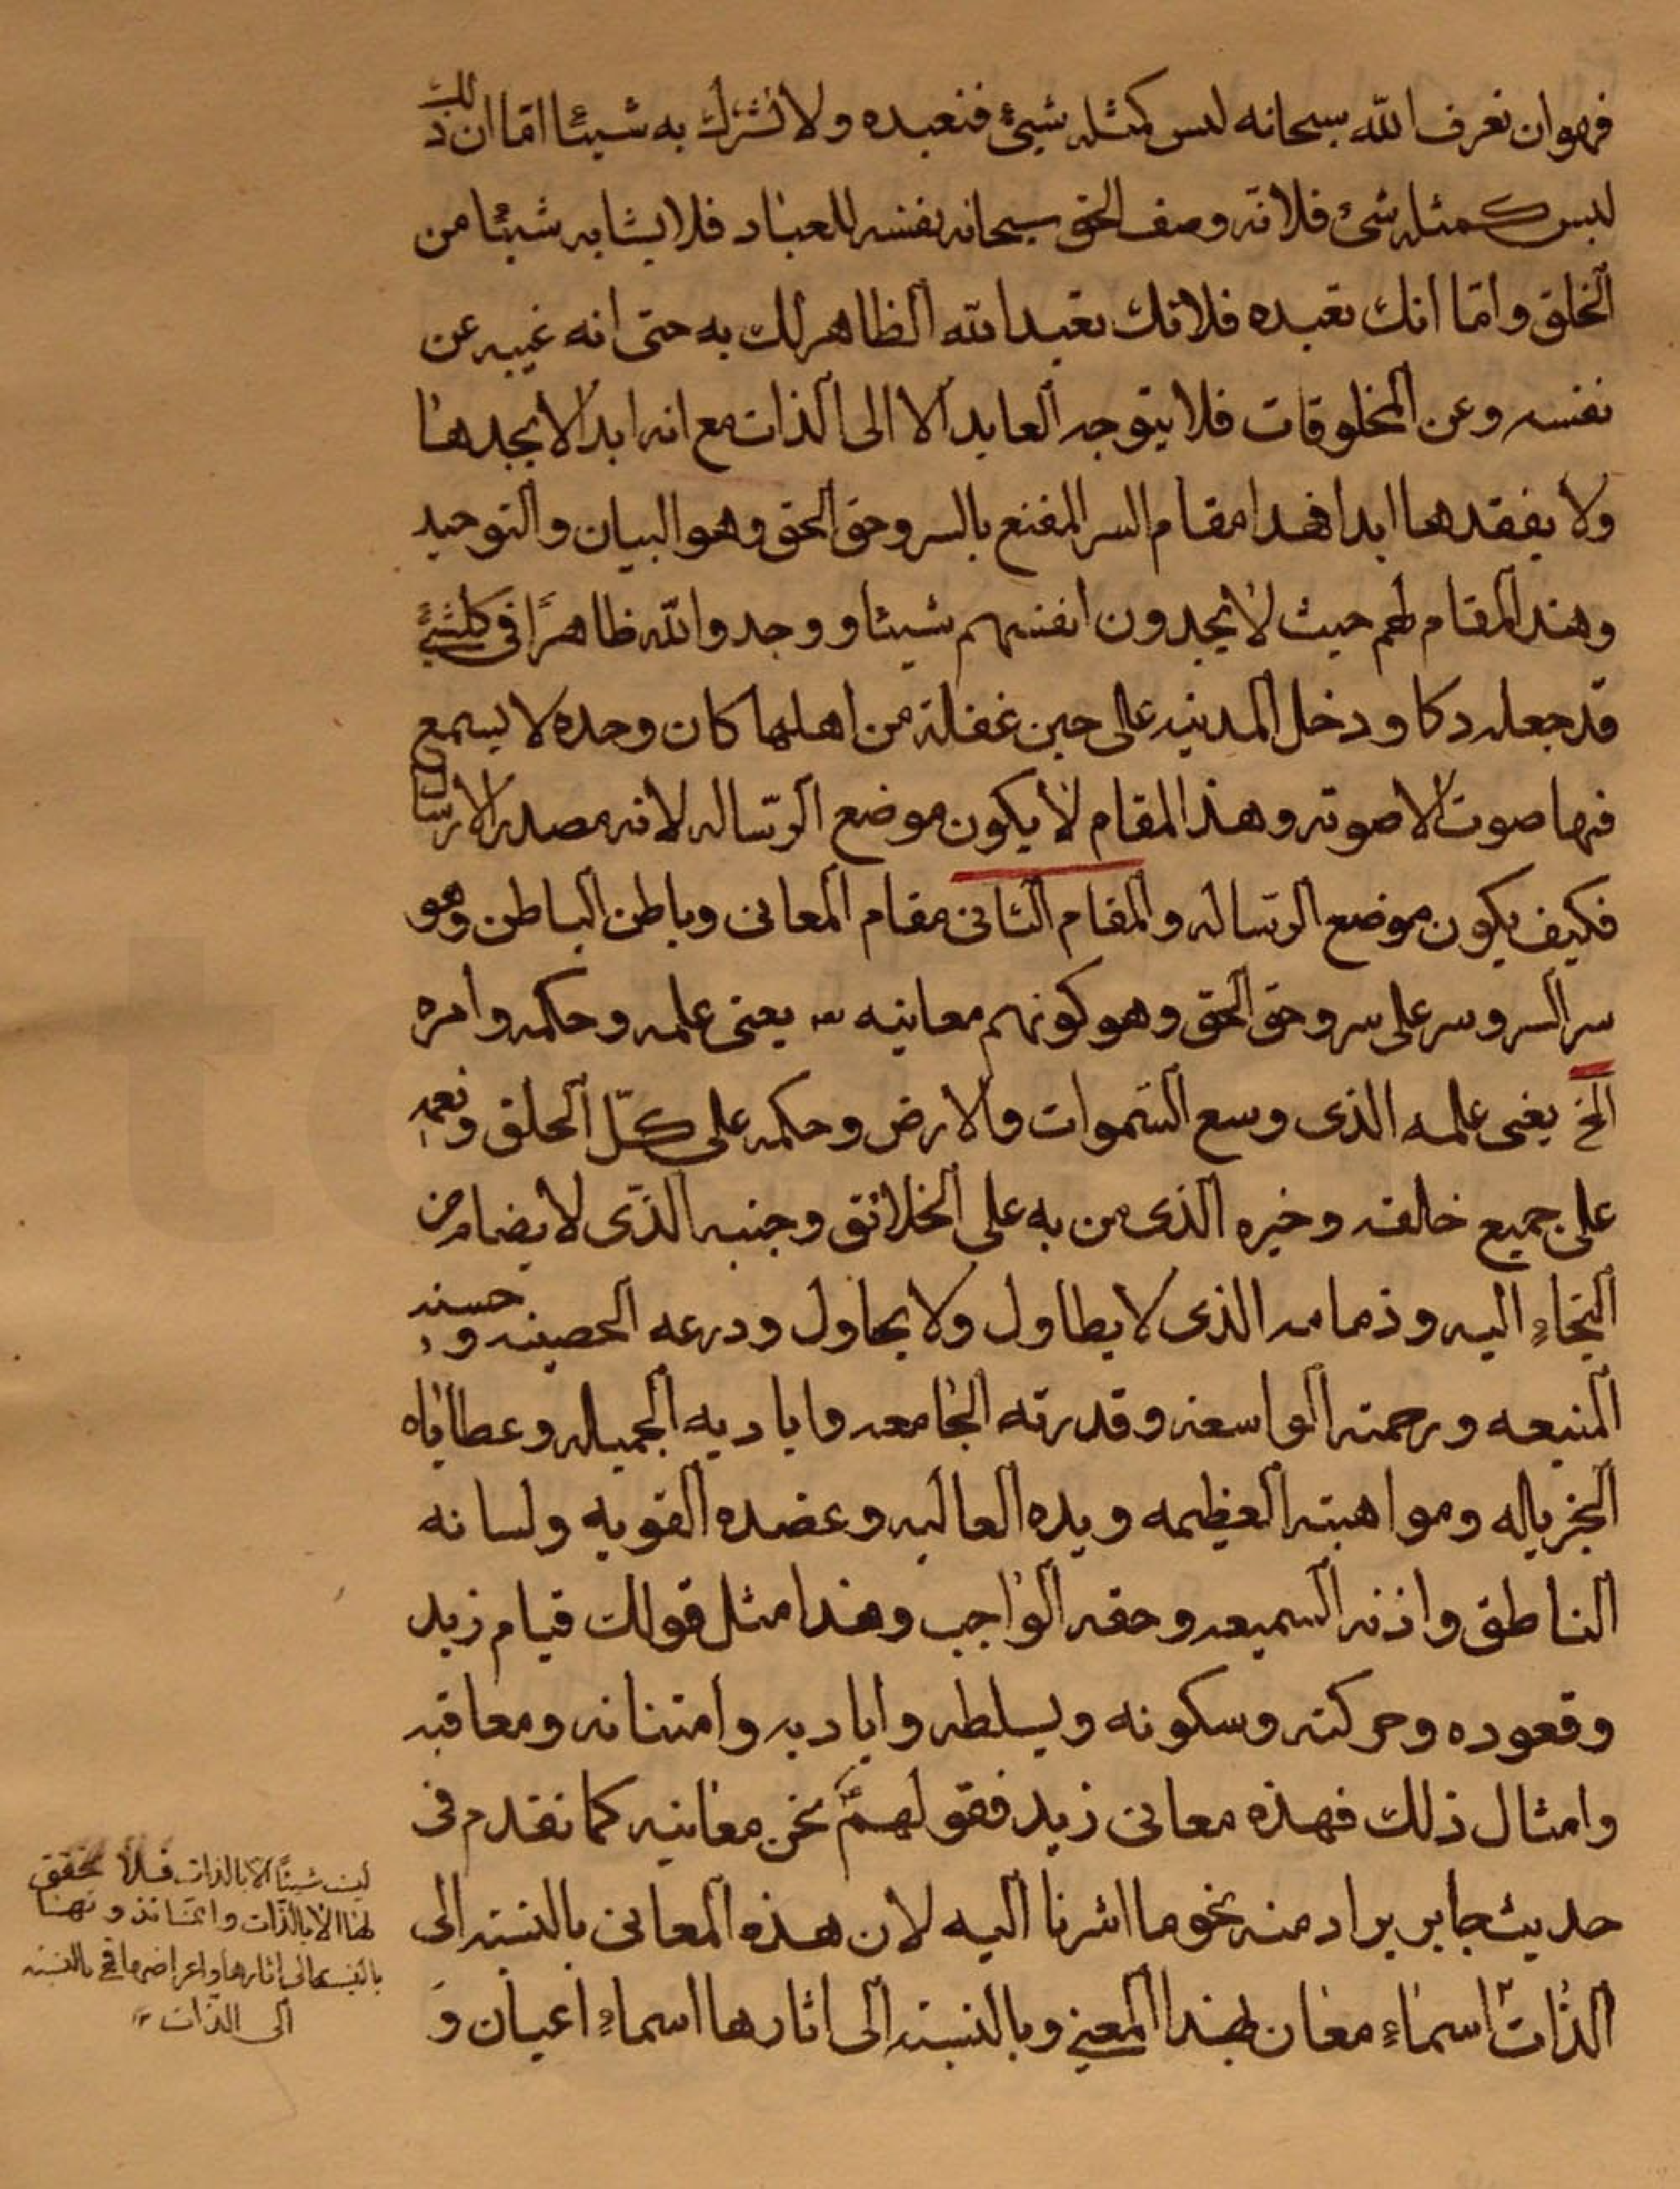 فهو ان تعرف الله سبحانه ليس كمثله شيئ فتعبده ولا تشرك به شيئا اما ان ذلك
ليس كمثله شئ فلانه وصف الحق سبحانه نفسه للعباد فلا يشابه شيئا من
الخلق واما انك تعبده فلانك تعبد الله الظاهر لك به حتى انه غيبه عن
نفسه وعن المخلوقات فلا يتوجه العابد الا الى الذات مع انه ابدا لا يجدها
ولا يفقدها ابدا فهذا مقام السر المقنع بالسر وحق الحق وهو البيان والتوحيد
وهذا المقام لهم حيث لا يجدون انفسهم شيئا و وجدوا الله ظاهرًا فى كلشئ
قد جعله دكا و دخل المدينه على حين غفلة من اهلها كان وحده لا يسمع
فيها صوت الا صوته وهذا المقام لا يكون موضع الرساله لانه مصدر الارسال
فكيف يكون موضع الرساله والمقام الثانى مقام المعانى وباطن الباطن وهو
سر السر وسر على سر وحق الحق وهو كونهم معانيه يعنى علمه وحكمه وامره
الخ يعنى علمه الذى وسع السموات والارض وحكمه على كل الخلق ونعمه
على جميع خلقه وخيره الذى من به على الخلائق وجنبه الذى لا يضام من
التجاء اليه وذمامه الذى لا يطاول ولا يحاول ودرعه الحصينه و حسنه
المنيعه ورحمته الواسعه وقدرته الجامعه واياديه الجميله وعطاياه
الجزياله ومواهبته العظيمه ويده العاليه وعضده القويه ولسانه
الناطق واذنه السميعه وحقه الواجب وهذا مثل قولك قيام زيد
وقعوده وحركته وسكونه وبسلطه واياديه وامتنانه ومعاقبه
وامثال ذلك فهذه معانى زيد فقولهم نحن معانيه كما تقدم فى
حديث جابر يراد منه نحو ما اشرنا اليه لان هذه المعانى بالنسبه الى
الذات اسماء معان بهذا المعنى وبالنسبه الى اثارها اسماء اعيان و
ليث شيئا الا بالذات فلا تحقق
لها الا بالذات و
بالنسبه الى اثارها واعراضها فهى بالنسبه
الى الذات